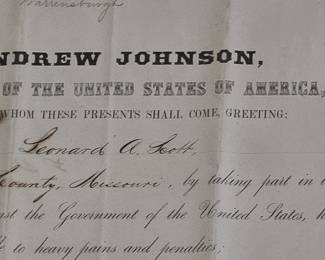 Warrensburgh
NDREW JOHNSON,
OF THE UNITED STATES OF AMERICA,
WHOM THESE PRESENTS SHALL COME, GREETING:
Leonard A. Scott,
County, Missouri, by taking part in
nst the Government of the United States, h
to heavy pains and penalties;